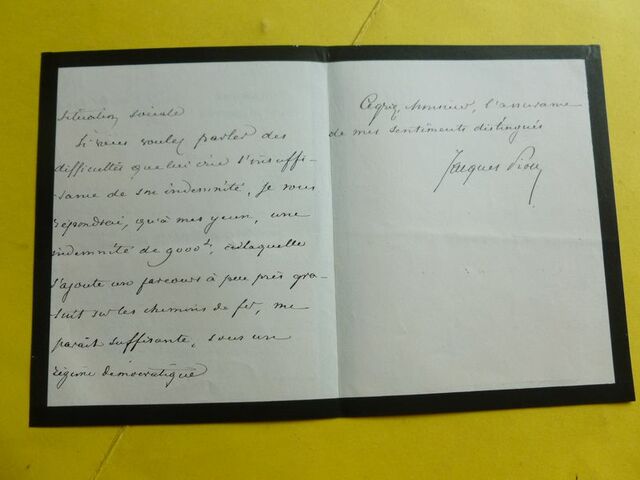 Situation sociale
Si vous voulez parler des
difficultés que lui crée l'insuffi-
-sance de son indemnité, je vous
répondrai, qu'à mes yeux, une
indemnité de 9000f, à laquelle
s'ajoute un parcours à peu près gra-
-tuit sur les chemins de fer, me
parait suffisante, sous un
régime démocratique
Agréez, Monsieur, l'assurance
de mes sentiments distingués
Jacques Piou